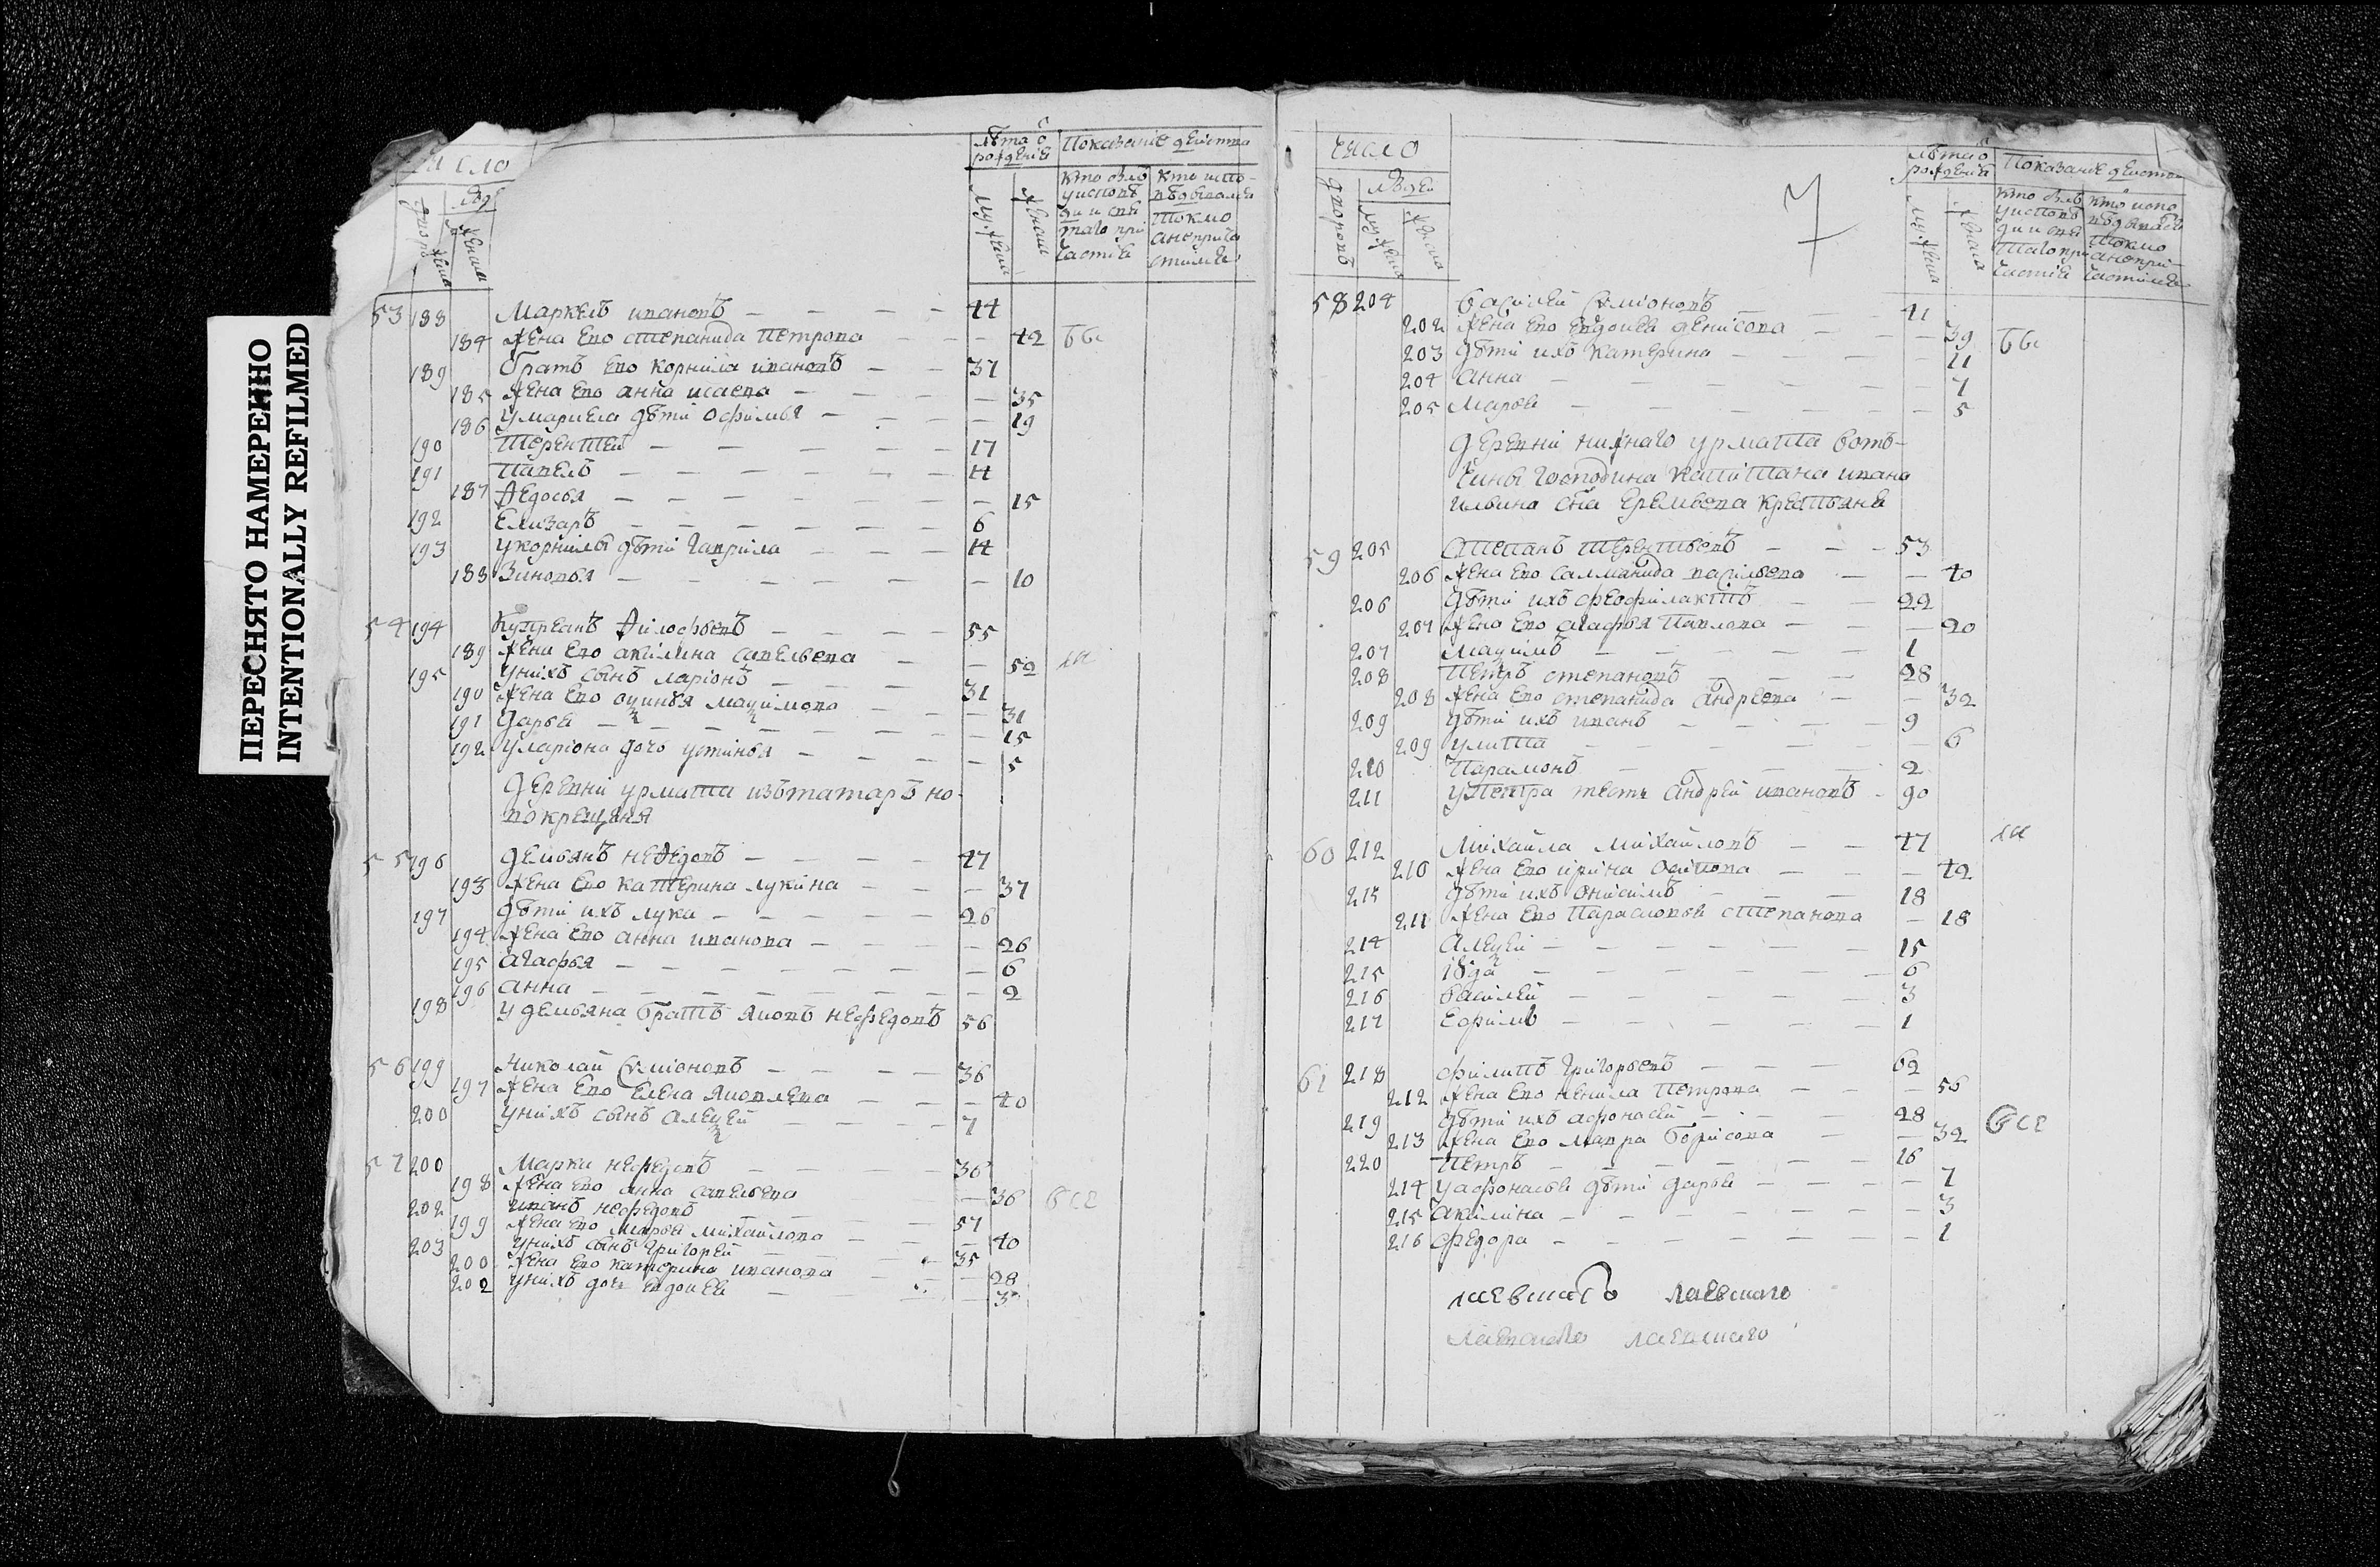 ПЕРЕСНЯТО НАМЕРЕННО
INTENTIONALLY REFILMED
число
люд
дворовъ
женска
лѣта о
рожденіе
Показаніе действа
муж. пола
женска
кто былъ
у исповѣ
ди и свя
таго при
частіе
кто испо
вѣдывался
токмо
а не прича
стился
53 188 Маркелъ ивановъ — 44
184 Жена ево степанида петрова — 42
189 братъ ево корнила ивановъ — 37
185 жена ево анна исаева — 35
186 у маркела дѣти офимья — 19
190 терентей — 17
191 павелъ — 14
187 Ѳедосья — 15
192 Елизаръ — 6
193 у корнилы дѣти гаврила — 14
188 Зиновья — 10
54 194 Куприанъ Ѳилофьевъ — 55
189 жена ево акилина савельева — 52
195 у нихъ сынъ ларіонъ — 31
190 жена ево оѯинья маѯимова — 31
191 дарья — 15
192 у ларіона дочь устинья — 5
деревни урмата изъ татаръ но-
вокрещеня
55 196 демьянъ неѲедовъ — 47
193 жена ево катерина лукина — 37
197 дѣти ихъ лука — 26
194 жена ево анна иванова — 26
195 агафья — 6
196 анна — 2
198 у демьяна братъ яковъ нефедовъ 56
56 199 николай симіоновъ — 36
197 жена ево елена яковлева — 40
200 у нихъ сынъ алеѯей — 7
57 200 марки нефедовъ — 36
198 жена ево анна савельева — 36 все
202 иванъ нефедовъ — 57
199 жена ево марья михайлова — 40
203 у нихъ сынъ григорей — 35
200 жена ево катерина иванова — 28
202 у нихъ дочь евдокея — 3
число
людей
дворовъ
муж. пола
женска
лѣта о
рожденія
Показаніе действа
муж. пола
женска
кто былъ
у исповѣ
ди и свя
таго при
частіе
кто испо
вѣдывался
токмо
а не при-
частился
58 204 василей симіоновъ — 41
202 жена ево евдокея денисова — 39
203 дѣти ихъ катерина — 11
204 анна — 7
205 марья — 5
деревни нижнаго урмата вотъ-
чины господина капитана ивана
ильина сна еремеева крестьяне
59 205 степанъ терентьевъ — 53
206 жена ево саламанида васильева — 40
206 дѣти ихъ феофилактъ — 22
207 жена ево агафья павлова — 20
207 маѯимъ — 1
208 петръ степановъ — 28
208 жена ево степанида андреева — 32
209 дѣти ихъ иванъ — 9
209 улита — 6
210 парамонъ — 2
211 у петра тесть андрей ивановъ — 90
60 212 михайла михайловъ — 47
210 жена ево ирина осипова — 42
213 дѣти ихъ онисимъ — 18
211 жена ево парасковья степанова — 18
214 алеѯей — 15
215 іюда — 6
216 василей — 3
217 ефимъ — 1
61 218 филипъ григорьевъ — 62
212 жена ево ненила петрова — 56
219 дѣти ихъ афонасей — 28 все
213 жена ево мавра борисова — 32
220 петръ — 16
214 у афонасья дѣти дарья — 7
215 акилина — 3
216 федора — 1